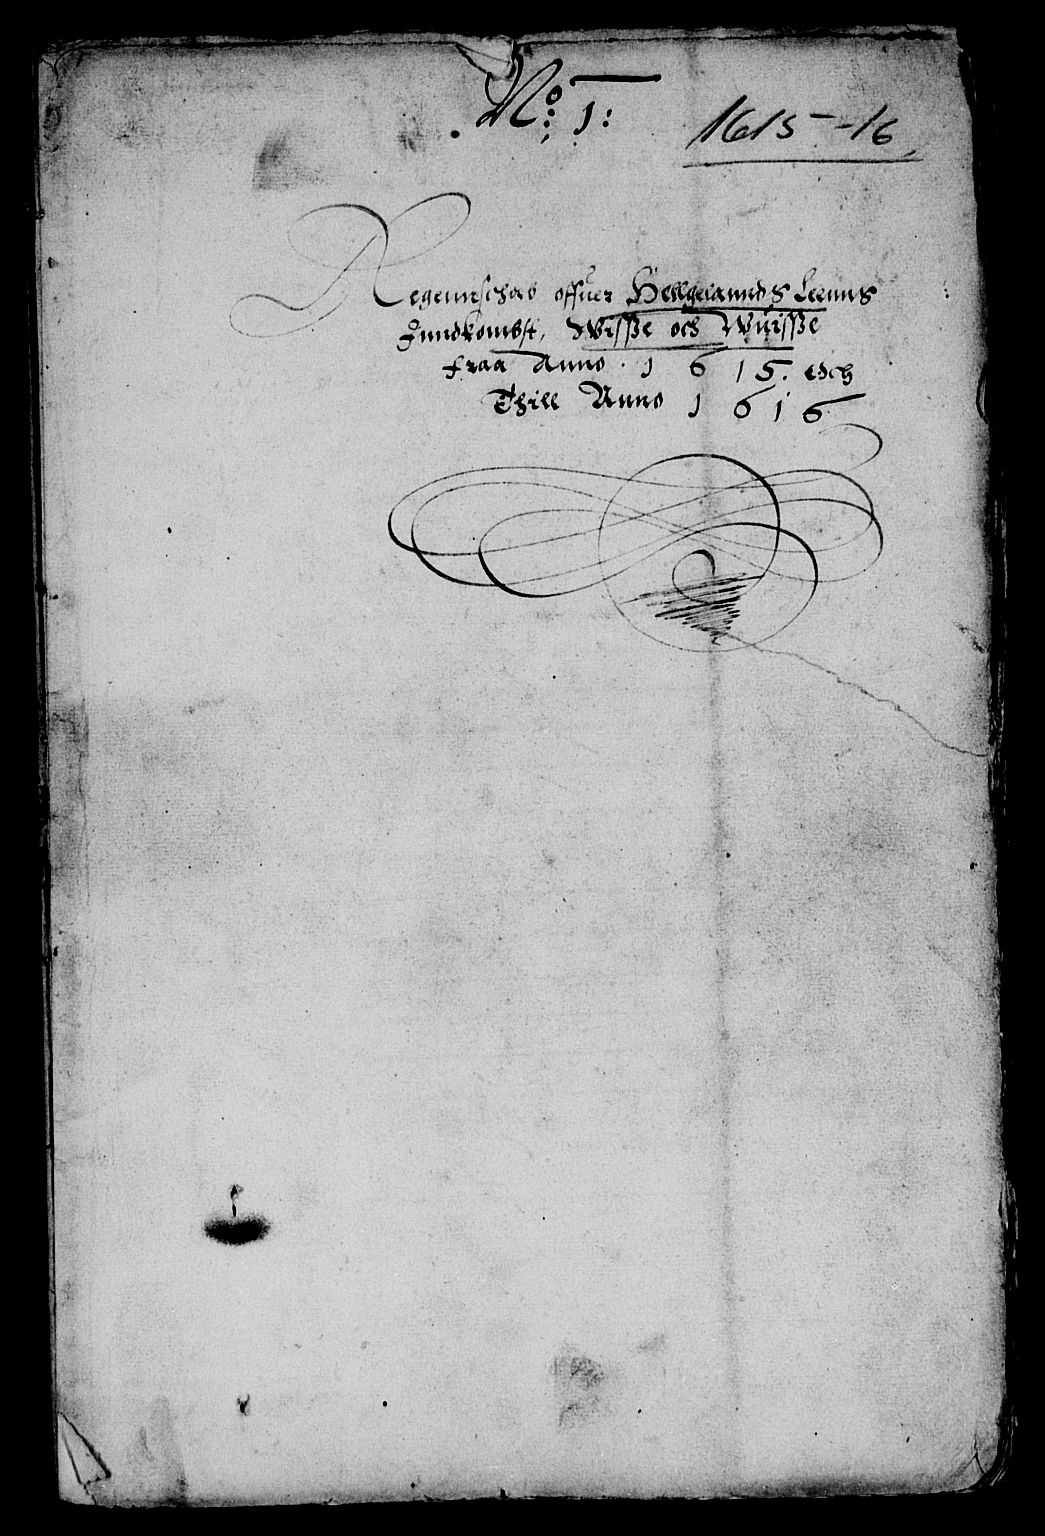 No: 1:
1615-16
Regennschab offuer Helgelannds Leenns
Inndkombst, Wisße och Wuisße
fraa Anno 1615. och
Thill Anno 1616